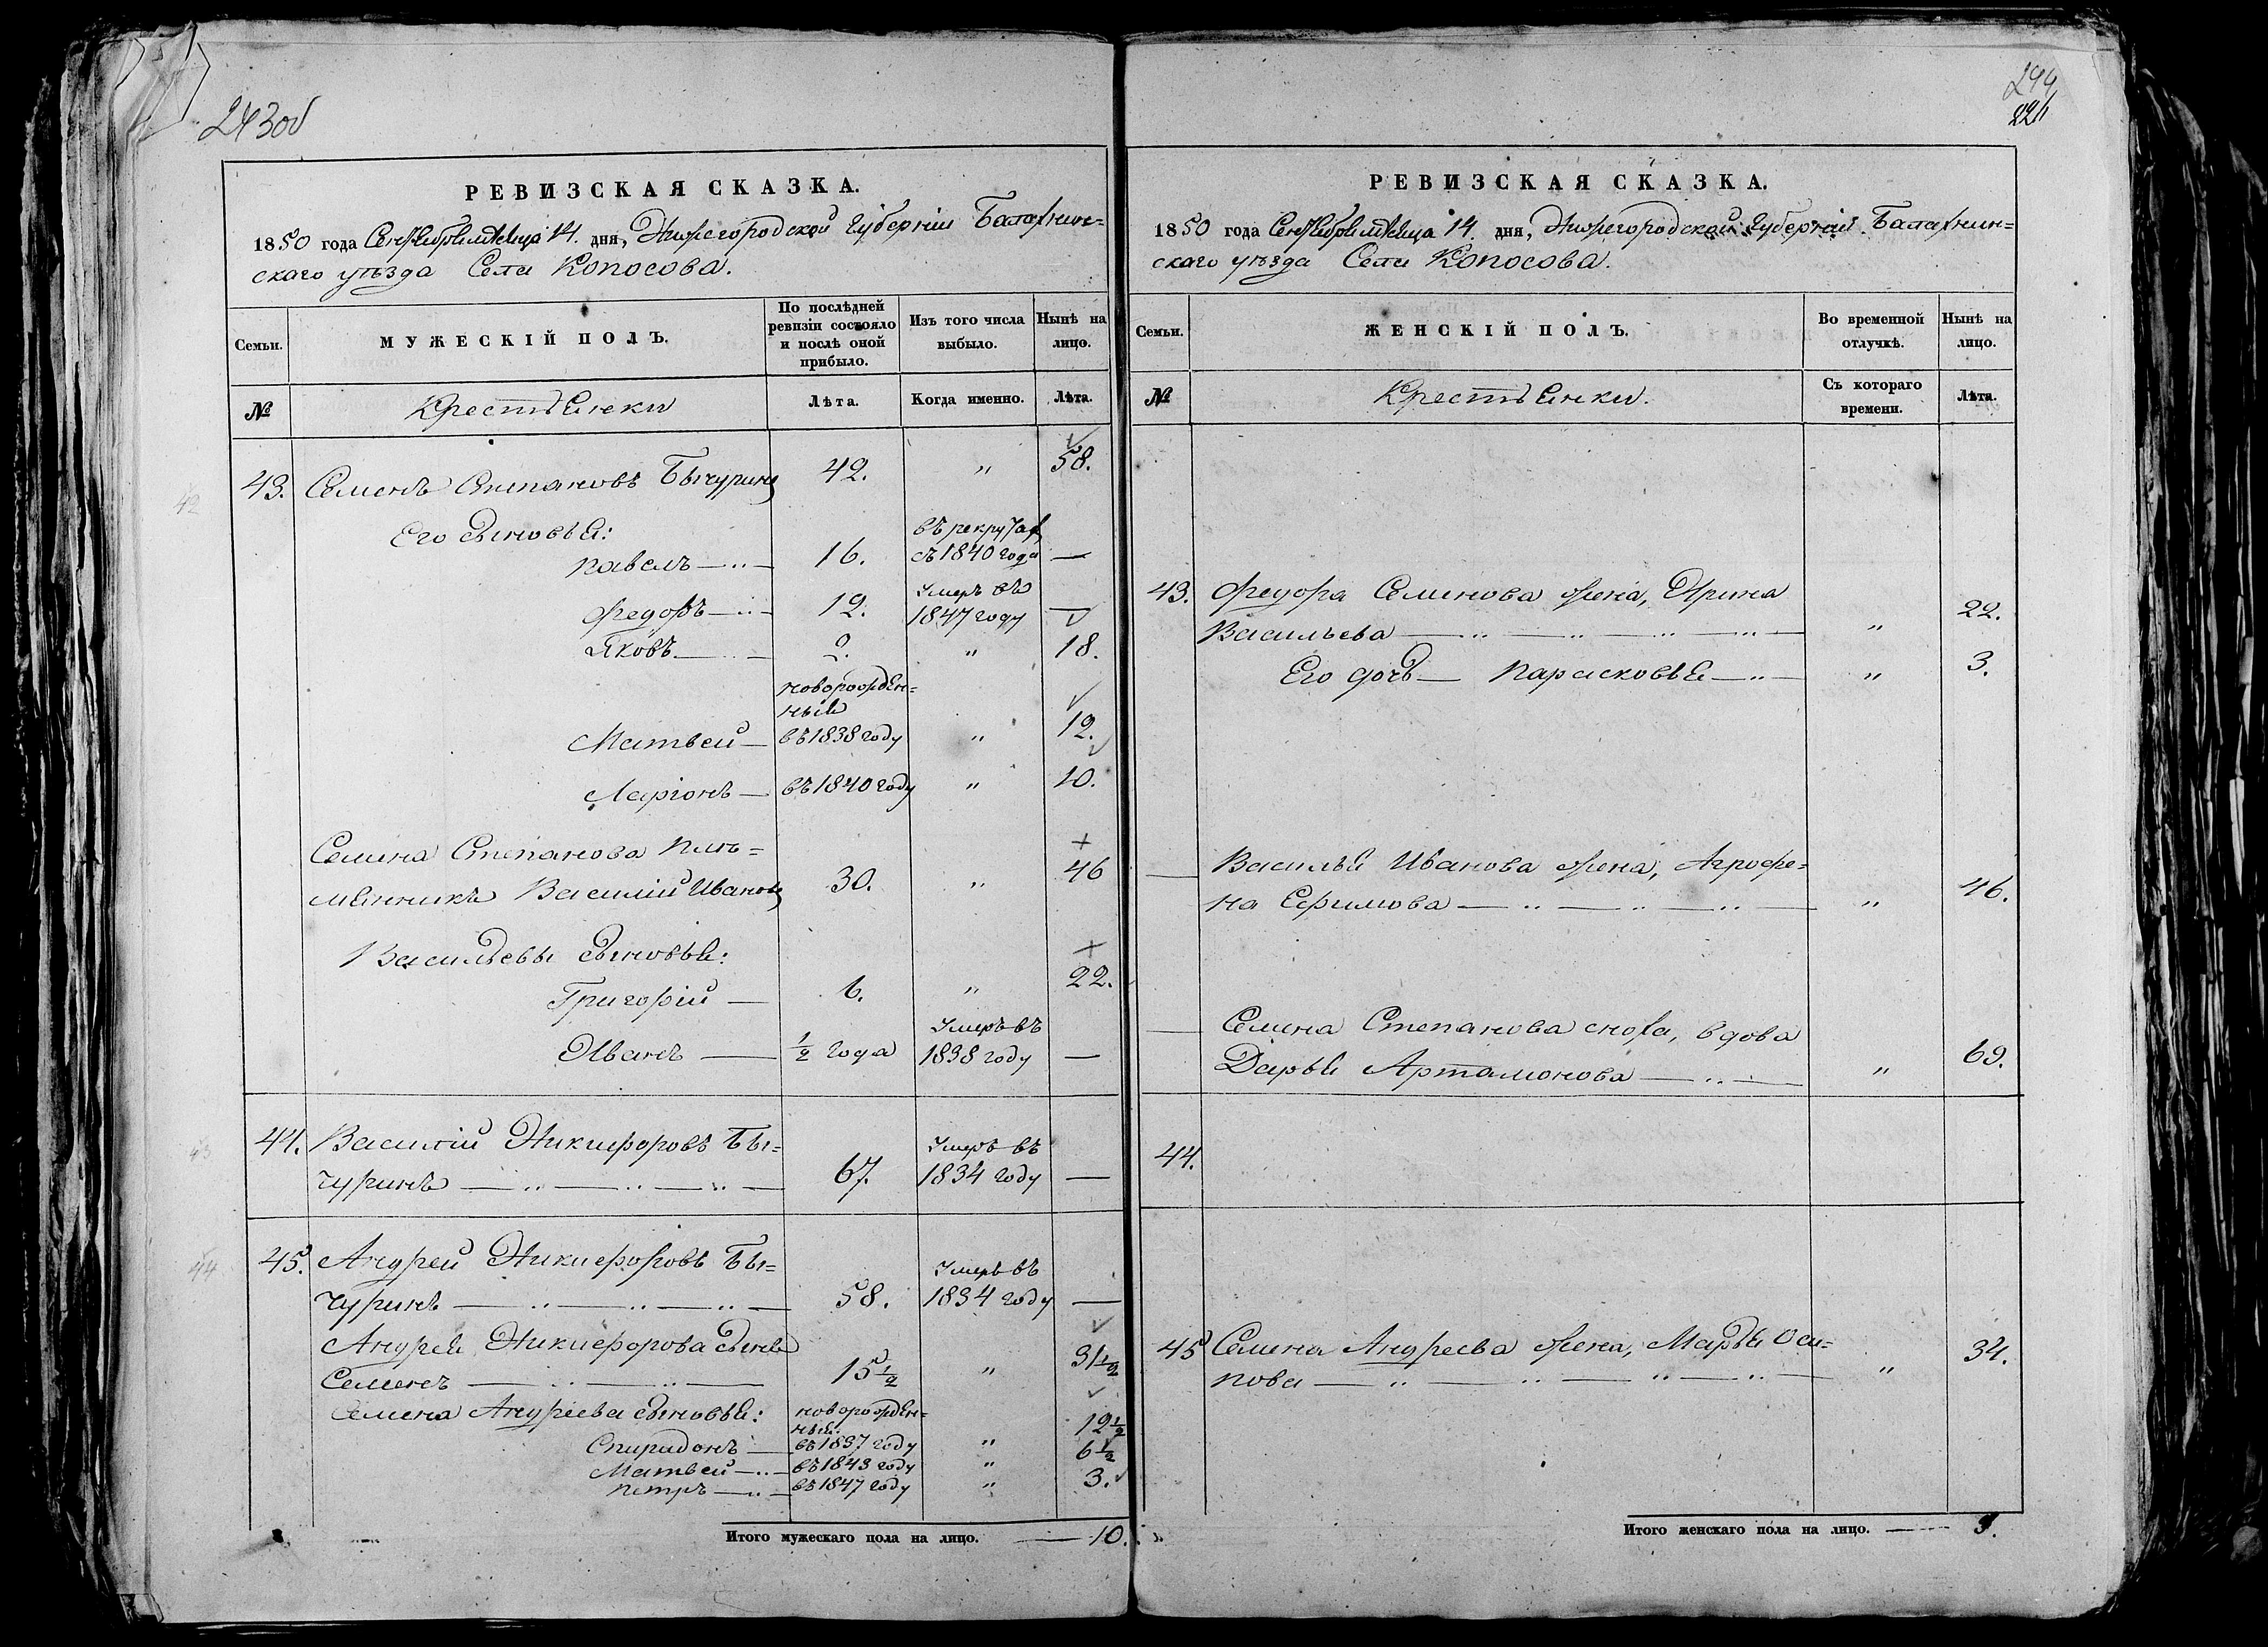 243об
РЕВИЗСКАЯ СКАЗКА.
1850 года Сентября месяца 14. дня, Нижегородской Губерніи Балахнин=
скаго уѣзда Села Копосова.
Семьи.
МУЖЕСКІЙ ПОЛЪ.
По послѣдней ревизіи состояло и послѣ оной прибыло.
Изъ того числа выбыло.
Нынѣ на лицо.
№
Крестьянеки
Лѣта.
Когда именно.
Лѣта.
42
43. Семенъ Степановъ Бычуринъ 42. " 58.
Его сыновья:
Павелъ 16. въ рекрутах съ 1840 года —
Федоръ 12. Умеръ въ 1847 году —
Яковъ 2. " 18.
новорожден=
ныя
Матвей въ 1838 году " 12.
Ларіонъ въ 1840 году " 10.
Семена Степанова плѣ=
мянникъ Василій Ивановъ 30. " 46
Васильевы сыновья:
Григорій 6. " 22.
Иванъ 1/2 года Умеръ въ 1838 году —
43
44. Василій Никифоровъ Бы=
чуринъ 67. Умеръ въ 1834 году —
44
45. Андрей Никифоровъ Бы=
чуринъ 58. Умеръ въ 1834 году —
Андрея Никифорова сынъ
Семенъ 15 1/2 " 31 1/2
Семена Андреева сыновья: новорожден=
ныя.
Спиридонъ въ 1837 году " 12 1/2
Матвей въ 1843 году " 6 1/2
Петръ въ 1847 году " 3.
Итого мужескаго пола на лицо. — 10.
244
РЕВИЗСКАЯ СКАЗКА.
1850 года Сентября месяца 14 дня, Нижегородской Губерніи Балахнин=
скаго уѣзда Села Копосова.
Семьи.
ЖЕНСКІЙ ПОЛЪ.
Во временной отлучкѣ.
Нынѣ на лицо.
№
Крестьянки.
Съ котораго времени.
Лѣта.
43. Федора Семенова жена, Ирина
Васильева " 22.
Его дочь — Парасковья " 3.
Василья Иванова жена, Агрофе=
на Ефимова " 46.
Семена Степанова сноха, вдова
Дарья Артамонова " 69.
44.
45 Семена Андреева жена, Марья Оси=
пова " 34.
Итого женскаго пола на лицо. —